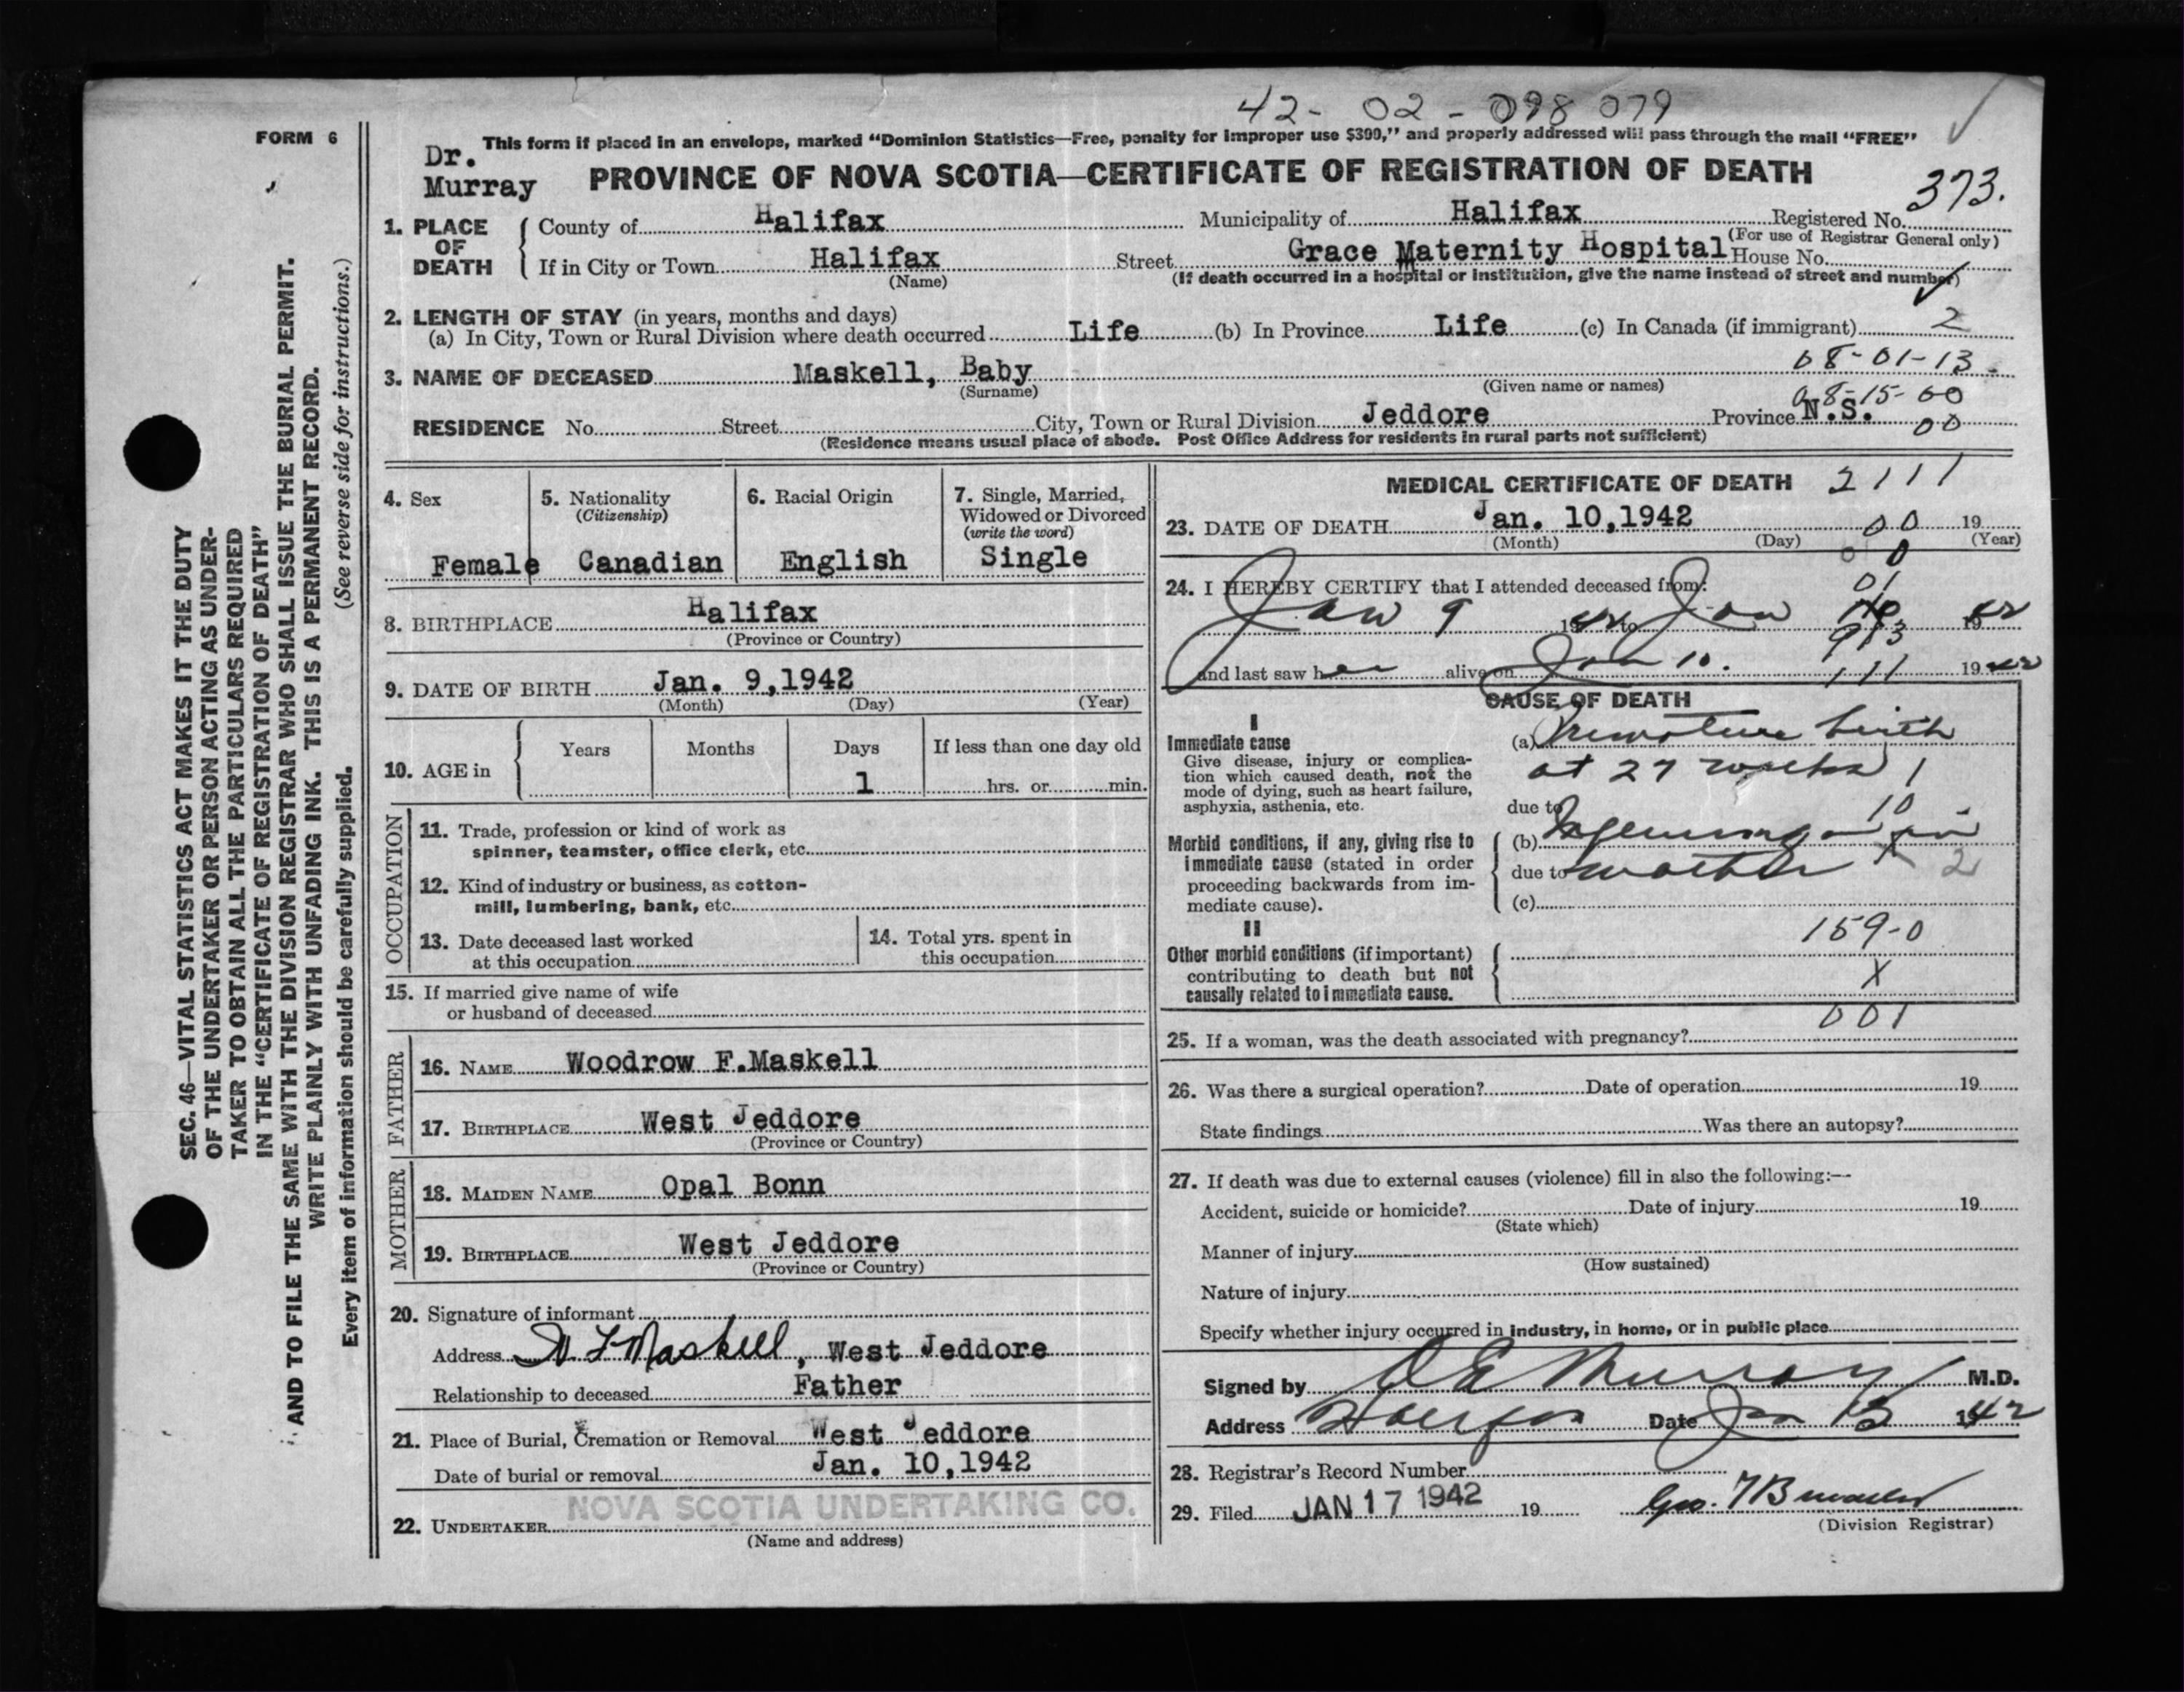 42-02-098079
FORM 6
This form if placed in an envelope, marked "Dominion Statistics—Free, penalty for improper use $300," and properly addressed will pass through the mail "FREE"
Dr.
Murray
PROVINCE OF NOVA SCOTIA—CERTIFICATE OF REGISTRATION OF DEATH
373.
1. PLACE OF DEATH
County of Halifax Municipality of Halifax Registered No.
(For use of Registrar General only)
If in City or Town Halifax Street Grace Maternity Hospital House No.
(Name) (If death occurred in a hospital or institution, give the name instead of street and number)
2. LENGTH OF STAY (in years, months and days)
(a) In City, Town or Rural Division where death occurred Life (b) In Province Life (c) In Canada (if immigrant) 2
08-01-13
3. NAME OF DECEASED Maskell, Baby
(Surname) (Given name or names)
08-15-00
RESIDENCE No. Street City, Town or Rural Division Jeddore Province N.S.
00
(Residence means usual place of abode. Post Office Address for residents in rural parts not sufficient)
4. Sex
Female
5. Nationality
(Citizenship)
Canadian
6. Racial Origin
English
7. Single, Married,
Widowed or Divorced
(write the word)
Single
8. BIRTHPLACE Halifax
(Province or Country)
9. DATE OF BIRTH Jan. 9,1942
(Month) (Day) (Year)
10. AGE in
Years Months Days If less than one day old
1 hrs. or min.
OCCUPATION
11. Trade, profession or kind of work as
spinner, teamster, office clerk, etc.
12. Kind of industry or business, as cotton-
mill, lumbering, bank, etc.
13. Date deceased last worked
at this occupation
14. Total yrs. spent in
this occupation
15. If married give name of wife
or husband of deceased
FATHER
16. NAME Woodrow F.Maskell
17. BIRTHPLACE West Jeddore
(Province or Country)
MOTHER
18. MAIDEN NAME Opal Bonn
19. BIRTHPLACE West Jeddore
(Province or Country)
20. Signature of informant
Address W. F Maskell, West Jeddore
Relationship to deceased Father
21. Place of Burial, Cremation or Removal West Jeddore
Date of burial or removal Jan. 10,1942
NOVA SCOTIA UNDERTAKING CO.
22. UNDERTAKER
(Name and address)
MEDICAL CERTIFICATE OF DEATH 2111
23. DATE OF DEATH Jan. 10,1942 00 19
(Month) (Day) (Year)
24. I HEREBY CERTIFY that I attended deceased from:
Jan 9 1942 to Jan 1942
and last saw her alive on Jan 10. 1942
111
CAUSE OF DEATH
I
Immediate cause
Give disease, injury or complica-
tion which caused death, not the
mode of dying, such as heart failure,
asphyxia, asthenia, etc.
(a) Premature birth
at 27 weeks
due to
Morbid conditions, if any, giving rise to
immediate cause (stated in order
proceeding backwards from im-
mediate cause).
(b)
due to mother
(c)
II
159-0
Other morbid conditions (if important)
contributing to death but not
causally related to immediate cause.
X
001
25. If a woman, was the death associated with pregnancy?
26. Was there a surgical operation? Date of operation 19
State findings Was there an autopsy?
27. If death was due to external causes (violence) fill in also the following:—
Accident, suicide or homicide? Date of injury 19
(State which)
Manner of injury
(How sustained)
Nature of injury
Specify whether injury occurred in industry, in home, or in public place
Signed by Murray M.D.
Address Halifax Date Jan 13 1942
28. Registrar's Record Number
29. Filed JAN 17 1942 19
(Division Registrar)
SEC. 46—VITAL STATISTICS ACT MAKES IT THE DUTY
OF THE UNDERTAKER OR PERSON ACTING AS UNDER-
TAKER TO OBTAIN ALL THE PARTICULARS REQUIRED
IN THE "CERTIFICATE OF REGISTRATION OF DEATH"
AND TO FILE THE SAME WITH THE DIVISION REGISTRAR WHO SHALL ISSUE THE BURIAL PERMIT.
WRITE PLAINLY WITH UNFADING INK. THIS IS A PERMANENT RECORD.
Every item of information should be carefully supplied. (See reverse side for instructions.)